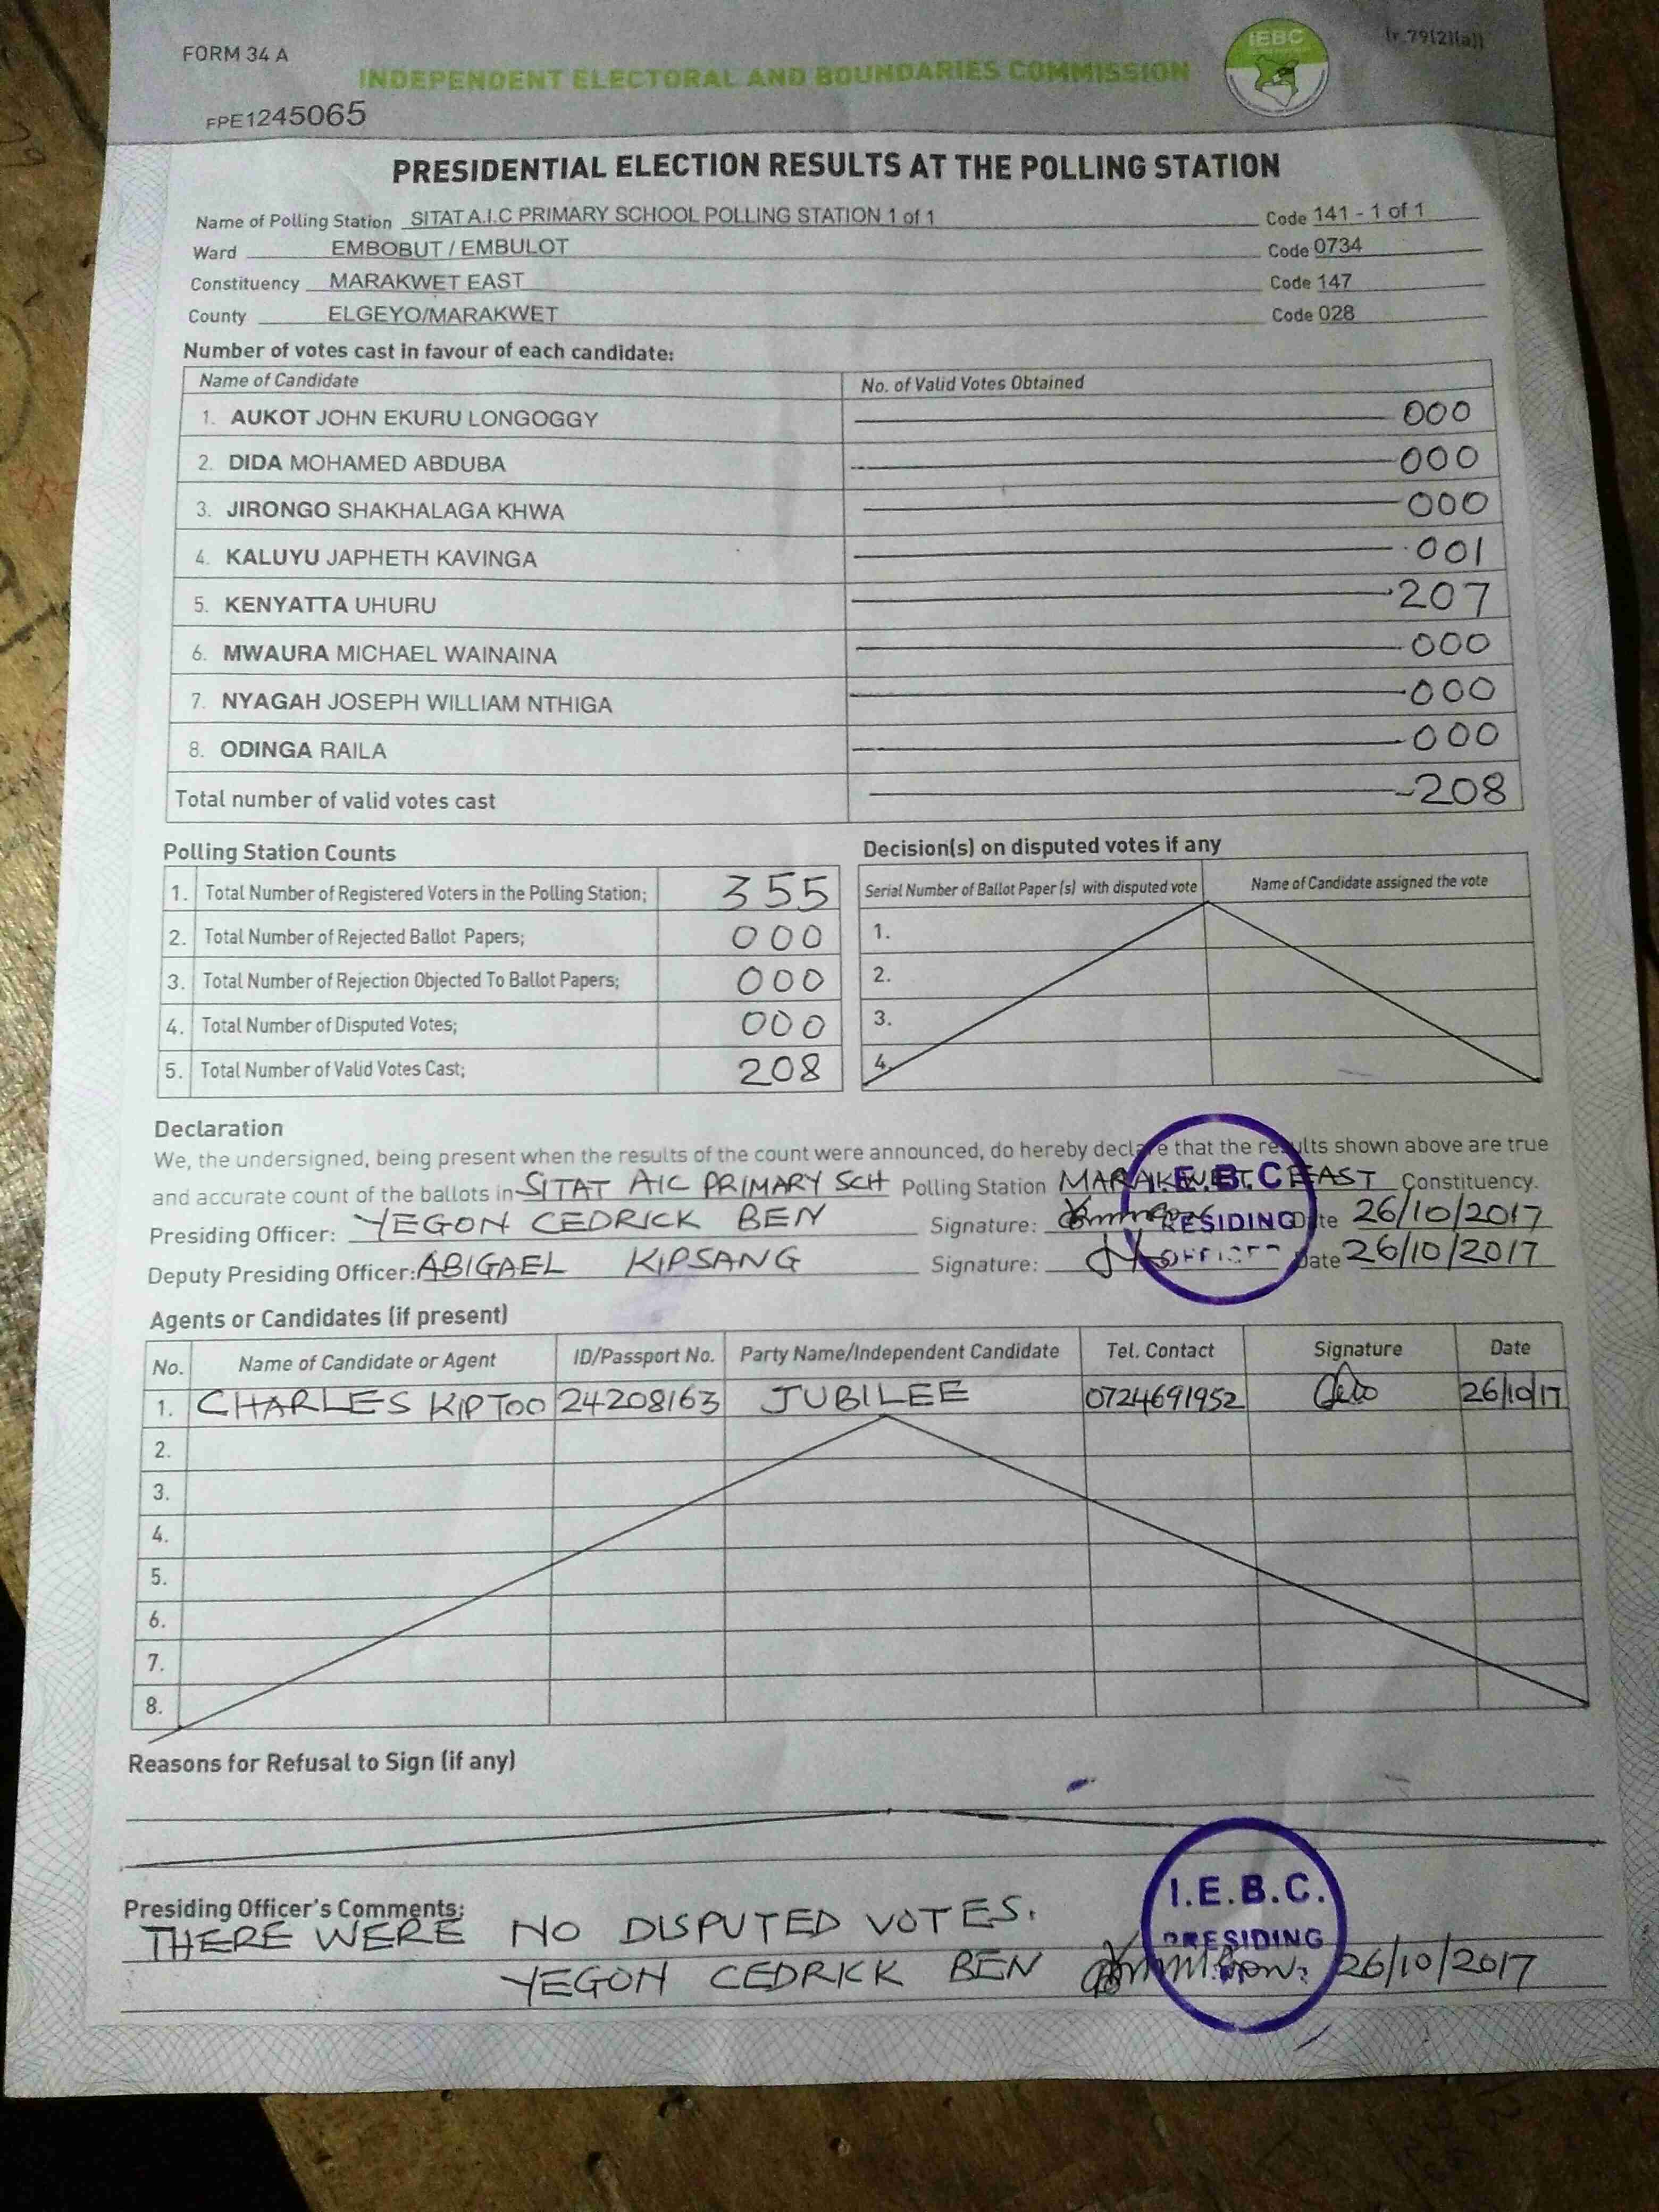 FORM 34 A
(r.79(2)(a))
IEBC
INDEPENDENT ELECTORAL AND BOUNDARIES COMMISSION
FPE1245065
PRESIDENTIAL ELECTION RESULTS AT THE POLLING STATION
Name of Polling Station SITAT A.I.C PRIMARY SCHOOL POLLING STATION 1 of 1 Code 141 - 1 of 1
Ward EMBOBUT / EMBULOT Code 0734
Constituency MARAKWET EAST Code 147
County ELGEYO/MARAKWET Code 028
Number of votes cast in favour of each candidate:
Name of Candidate No. of Valid Votes Obtained
1. AUKOT JOHN EKURU LONGOGGY 000
2. DIDA MOHAMED ABDUBA 000
3. JIRONGO SHAKHALAGA KHWA 000
4. KALUYU JAPHETH KAVINGA 001
5. KENYATTA UHURU 207
6. MWAURA MICHAEL WAINAINA 000
7. NYAGAH JOSEPH WILLIAM NTHIGA 000
8. ODINGA RAILA 000
Total number of valid votes cast 208
Polling Station Counts
1. Total Number of Registered Voters in the Polling Station; 355
2. Total Number of Rejected Ballot Papers; 000
3. Total Number of Rejection Objected To Ballot Papers; 000
4. Total Number of Disputed Votes; 000
5. Total Number of Valid Votes Cast; 208
Decision(s) on disputed votes if any
Serial Number of Ballot Paper (s) with disputed vote Name of Candidate assigned the vote
1.
2.
3.
4.
Declaration
We, the undersigned, being present when the results of the count were announced, do hereby declare that the results shown above are true
and accurate count of the ballots in SITAT AIC PRIMARY SCH Polling Station MARAKWET EAST Constituency.
Presiding Officer: YEGON CEDRICK BEN Signature: Date 26/10/2017
Deputy Presiding Officer: ABIGAEL KIPSANG Signature: Date 26/10/2017
I.E.B.C
PRESIDING
OFFICER
Agents or Candidates (if present)
No. Name of Candidate or Agent ID/Passport No. Party Name/Independent Candidate Tel. Contact Signature Date
1. CHARLES KIPTOO 24208163 JUBILEE 0724691952 26/10/17
2.
3.
4.
5.
6.
7.
8.
Reasons for Refusal to Sign (if any)
Presiding Officer's Comments:
THERE WERE NO DISPUTED VOTES.
YEGON CEDRICK BEN 26/10/2017
I.E.B.C.
PRESIDING